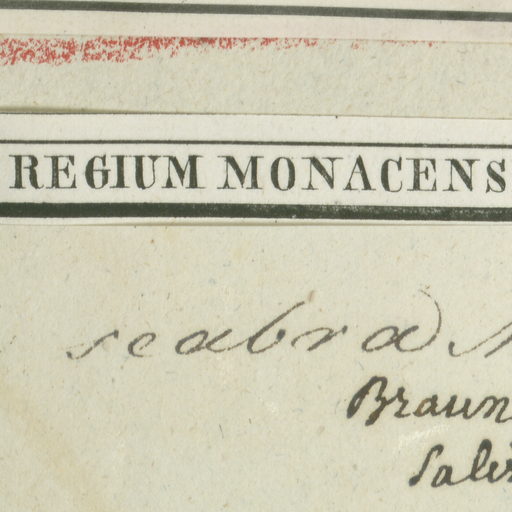 REGIUM MONACENS
scabra
Braun
Salis